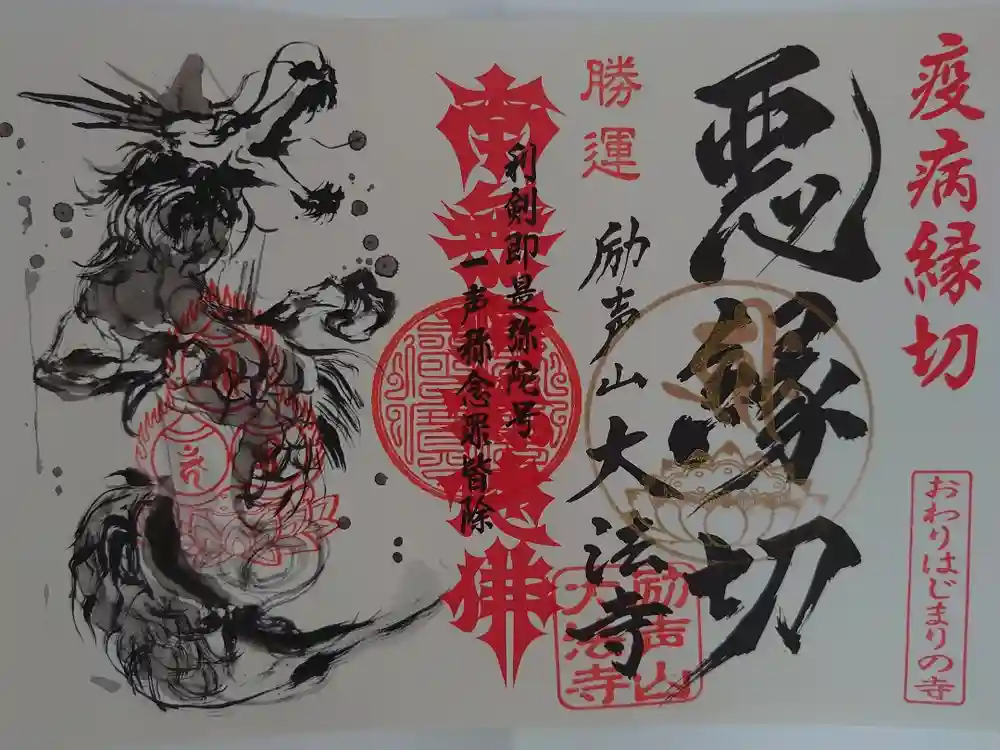 疫病縁切
おわりはじまりの寺
悪縁切
勝運
励声山大法寺
励声山
大法寺
利剣即是弥陀号
一声称念罪皆除